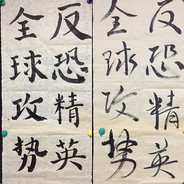 反恐精英
全球攻势
反恐精英
全球攻势